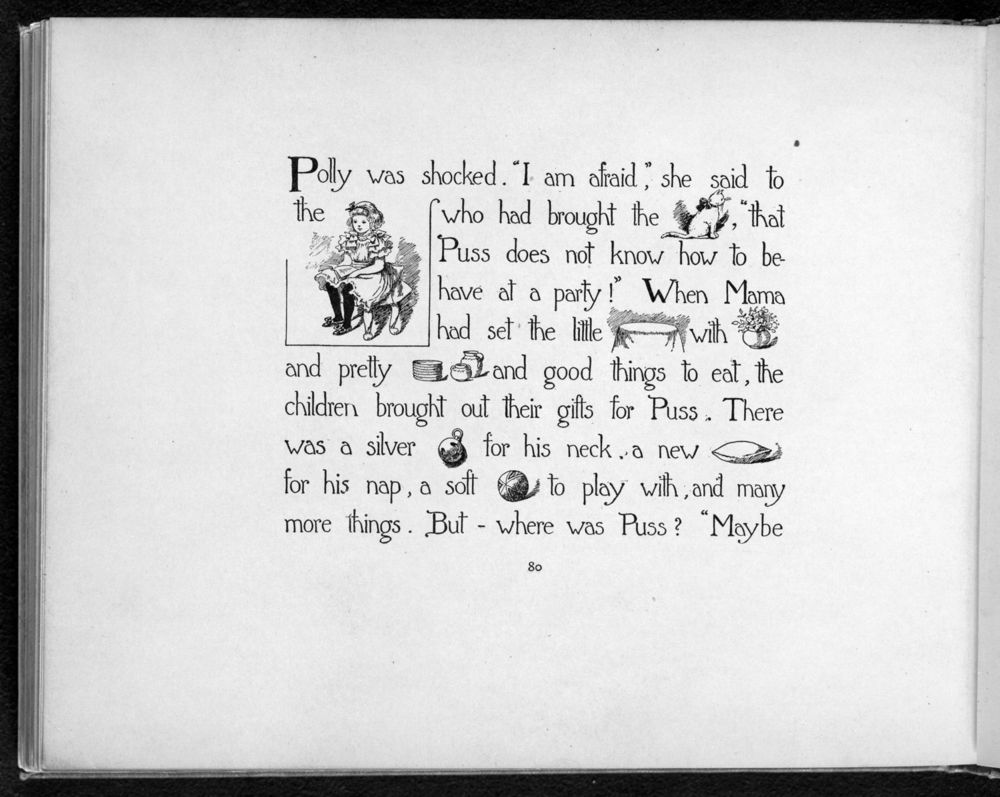 Polly was shocked. "I am afraid," she said to
the who had brought the , "that
Puss does not know how to be-
have at a party!" When Mama
had set the little with
and pretty and good things to eat, the
children brought out their gifts for Puss. There
was a silver for his neck, a new
for his nap, a soft to play with, and many
more things. But - where was Puss? "Maybe
80